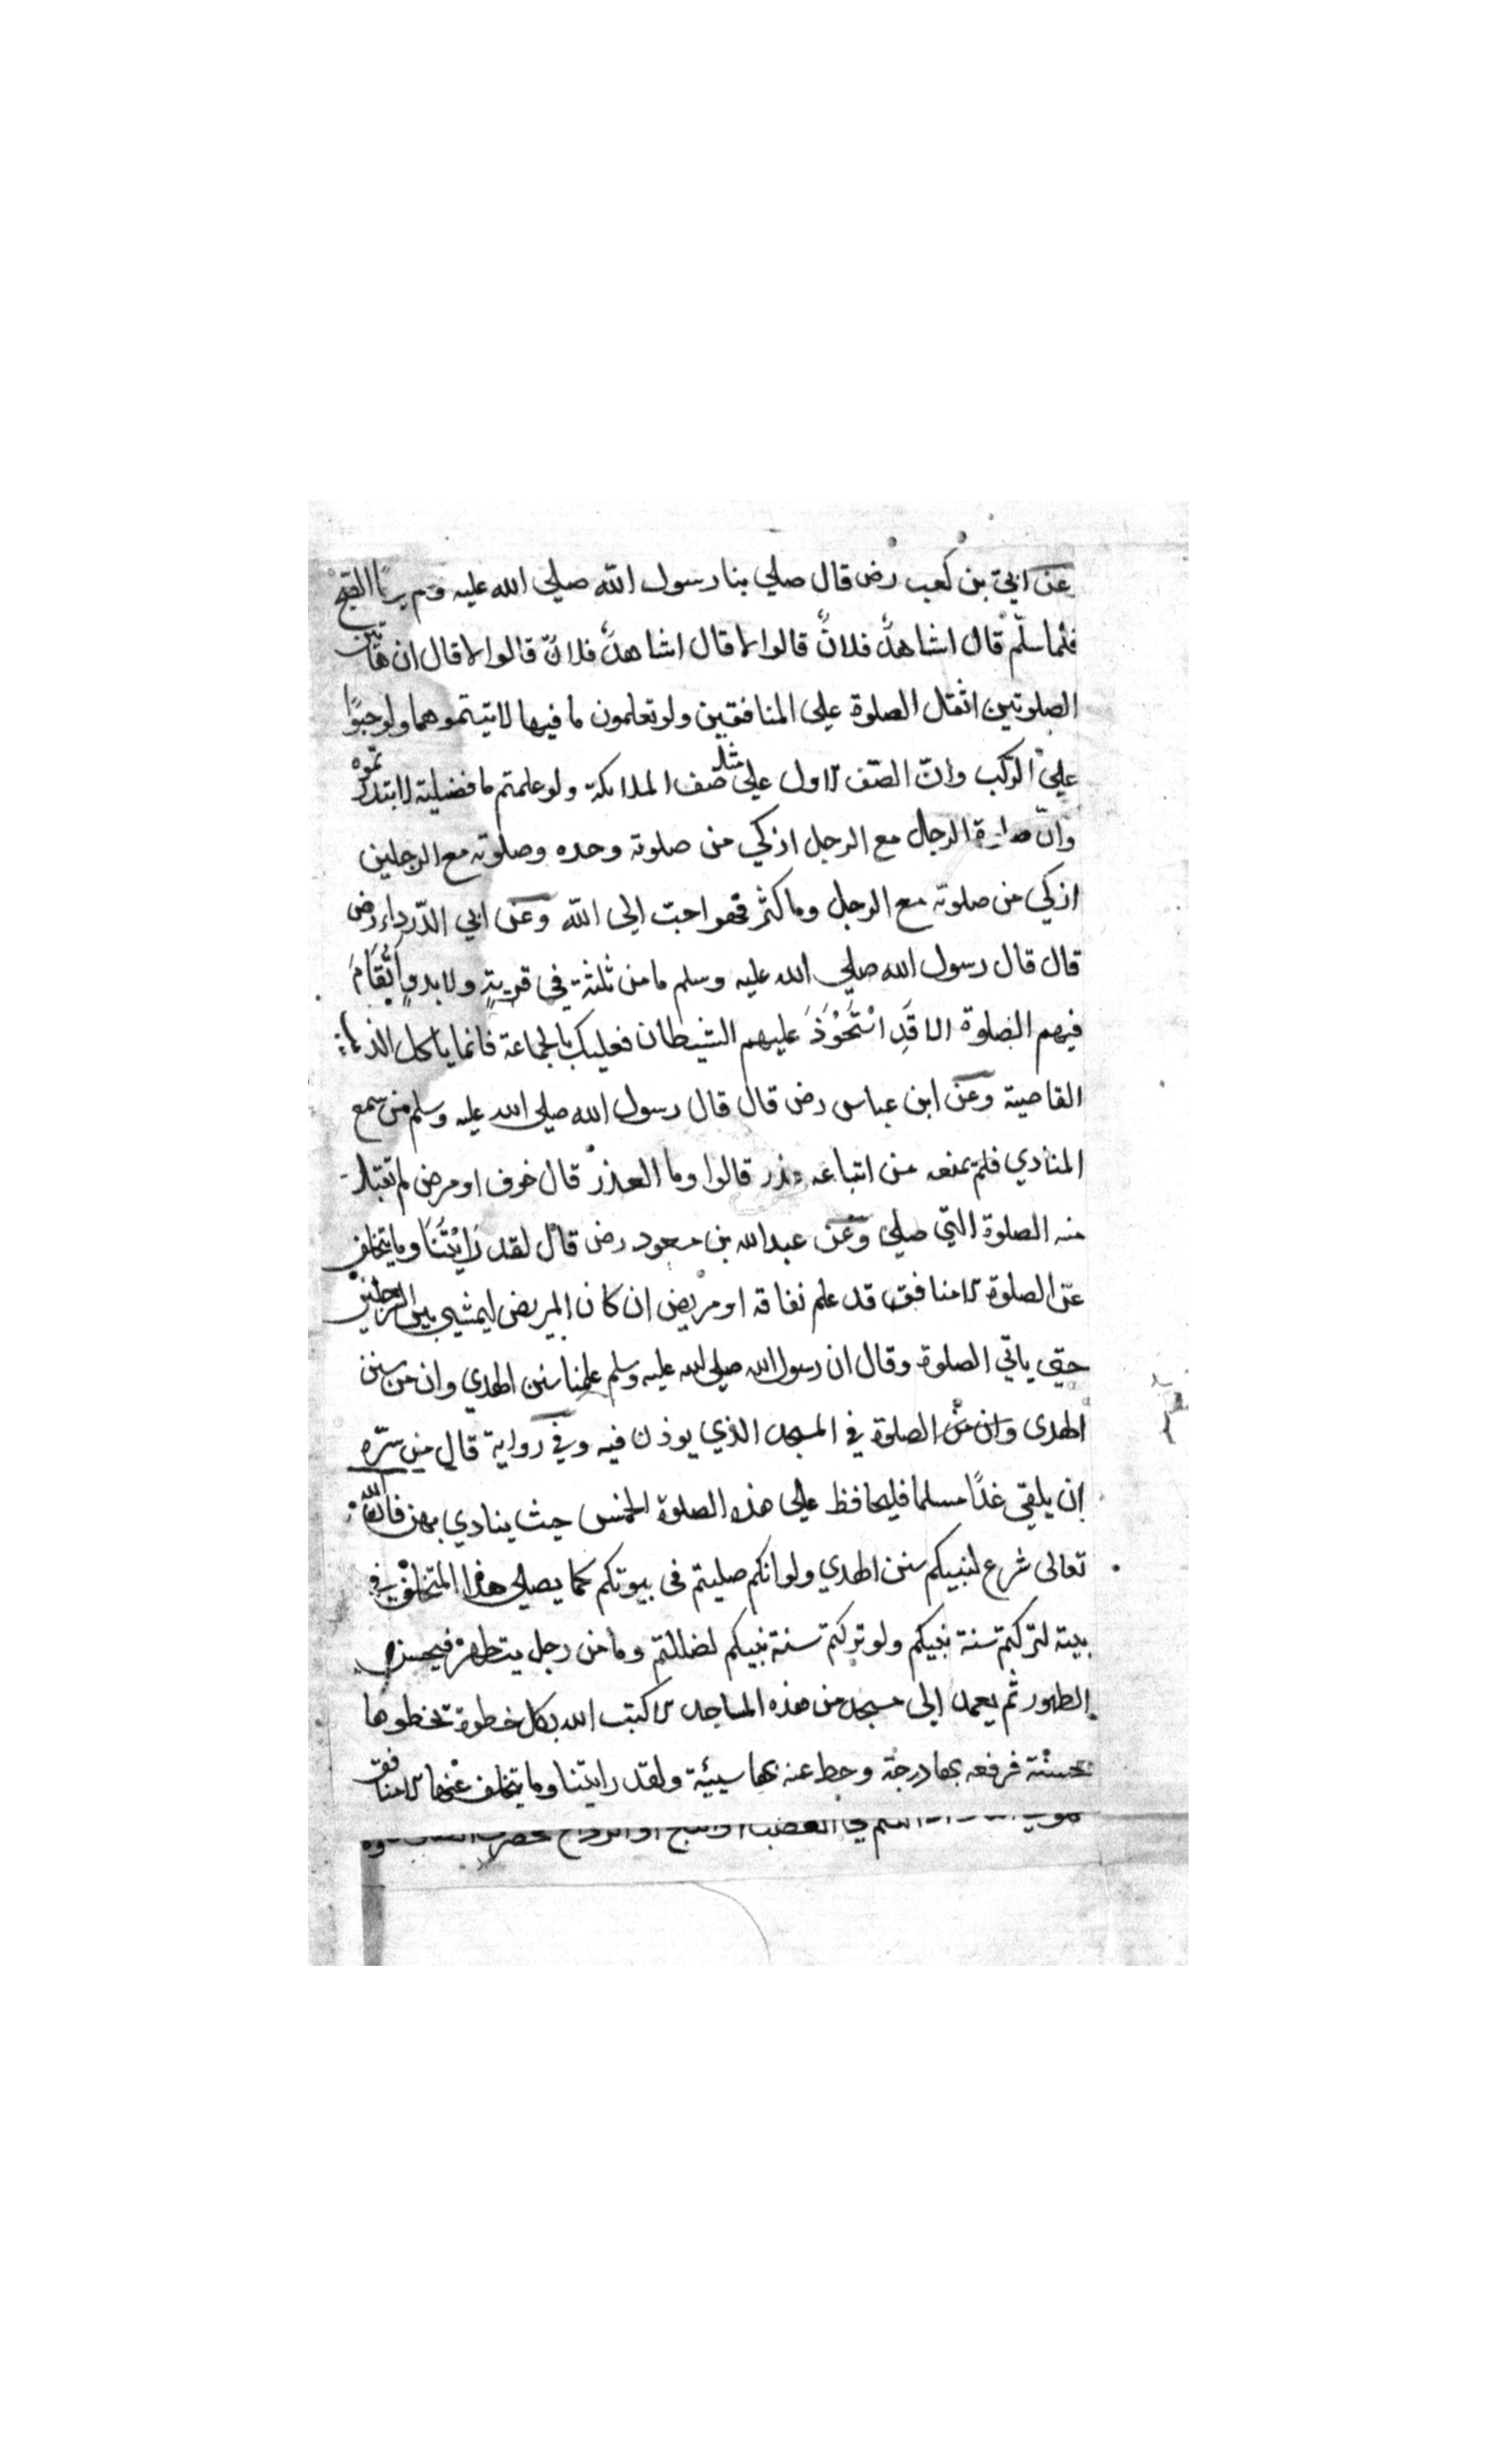 عن ابيّ بن كعب رض قال صلي بنا رسول الله صلي الله عليه وم يومًا الصبح
فلما سلّم قال اشاهدٌ فلانٌ قالوا لا قال اشاهدٌ فلانٌ قالوا لا قال ان هاتين
الصلوتين اثقل الصلوة علي المنافقين ولو تعلمون ما فيها لاتيتموهما ولو حبوًا
علي الرّكب وانّ الصّف الاول علي مثل صف الملائكة ولو علمتم ما فضيلته لابتدرتموه
وانّ صلوة الرجل مع الرجل ازكي من صلوته وحده وصلوته مع الرجلين
ازكي من صلوته مع الرجل وما كثر فهو احبّ الي الله وعن ابي الدّرداء رض
قال قال رسول الله صلي الله عليه وسلم ما من ثلثة في قريةٍ ولا بدوٍ لا تُقَامُ
فيهم الصلوة الا قَدِ اسْتَحْوَذَ عليهم الشيطان فعليك بالجماعة فانما ياكل الذئب
القاصية وعن ابن عباس رض قال قال رسول الله صلي الله عليه وسلم من سمع
المنادي فلم يمنعه من اتباعه عذر قالوا وما العذر قال خوف او مرض لم تقبل
منه الصلوة التي صلي وعن عبد الله بن مسعود رض قال لقد رَايْتُنَا وما يتخلف
عن الصلوة الا منافق قد علم نفاقه او مريض ان كان المريض ليمشي بين الرجلين
حتي ياتي الصلوة وقال ان رسول الله صلي الله عليه وسلم علمنا سنن الهدي وان من سنن
الهدى وان من الصلوة في المسجد الذي يوذن فيه وفي رواية قال من سرّه
ان يلقي غدًا مسلما فليحافظ علي هذه الصلوة الخمس حيث ينادي بهن فان الله
تعالى شرع لنبيكم سنن الهدي ولو انكم صليتم فى بيوتكم كما يصلي هذا المتخلف في
بيته لتركتم سنة نبيكم ولو تركتم سنة نبيكم لضللتم وما من رجل يتطهر فيحسن
الطهور ثم يعمد الى مسجد من هذه المساجد الا كتب الله بكل خطوة يخطوها
حسنة فرفعه بها درجة وحط عنه بها سيئة ولقد رايتنا وما يتخلف عنها الا منافق